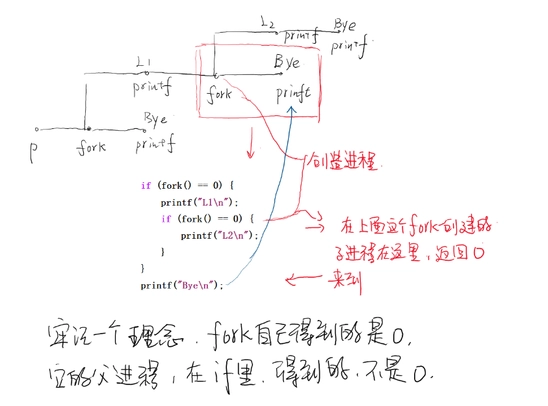 L2 printf Bye
printf
L1 Bye
printf fork printf
Bye
P fork printf
创造进程
if (fork() == 0) {
printf("L1\n");
if (fork() == 0) {
printf("L2\n");
}
}
printf("Bye\n");
在上面这个fork创建的
子进程在这里,返回0
来到
牢记一个理念.fork自己得到的是0,
它的父进程,在if里.得到的,不是0.